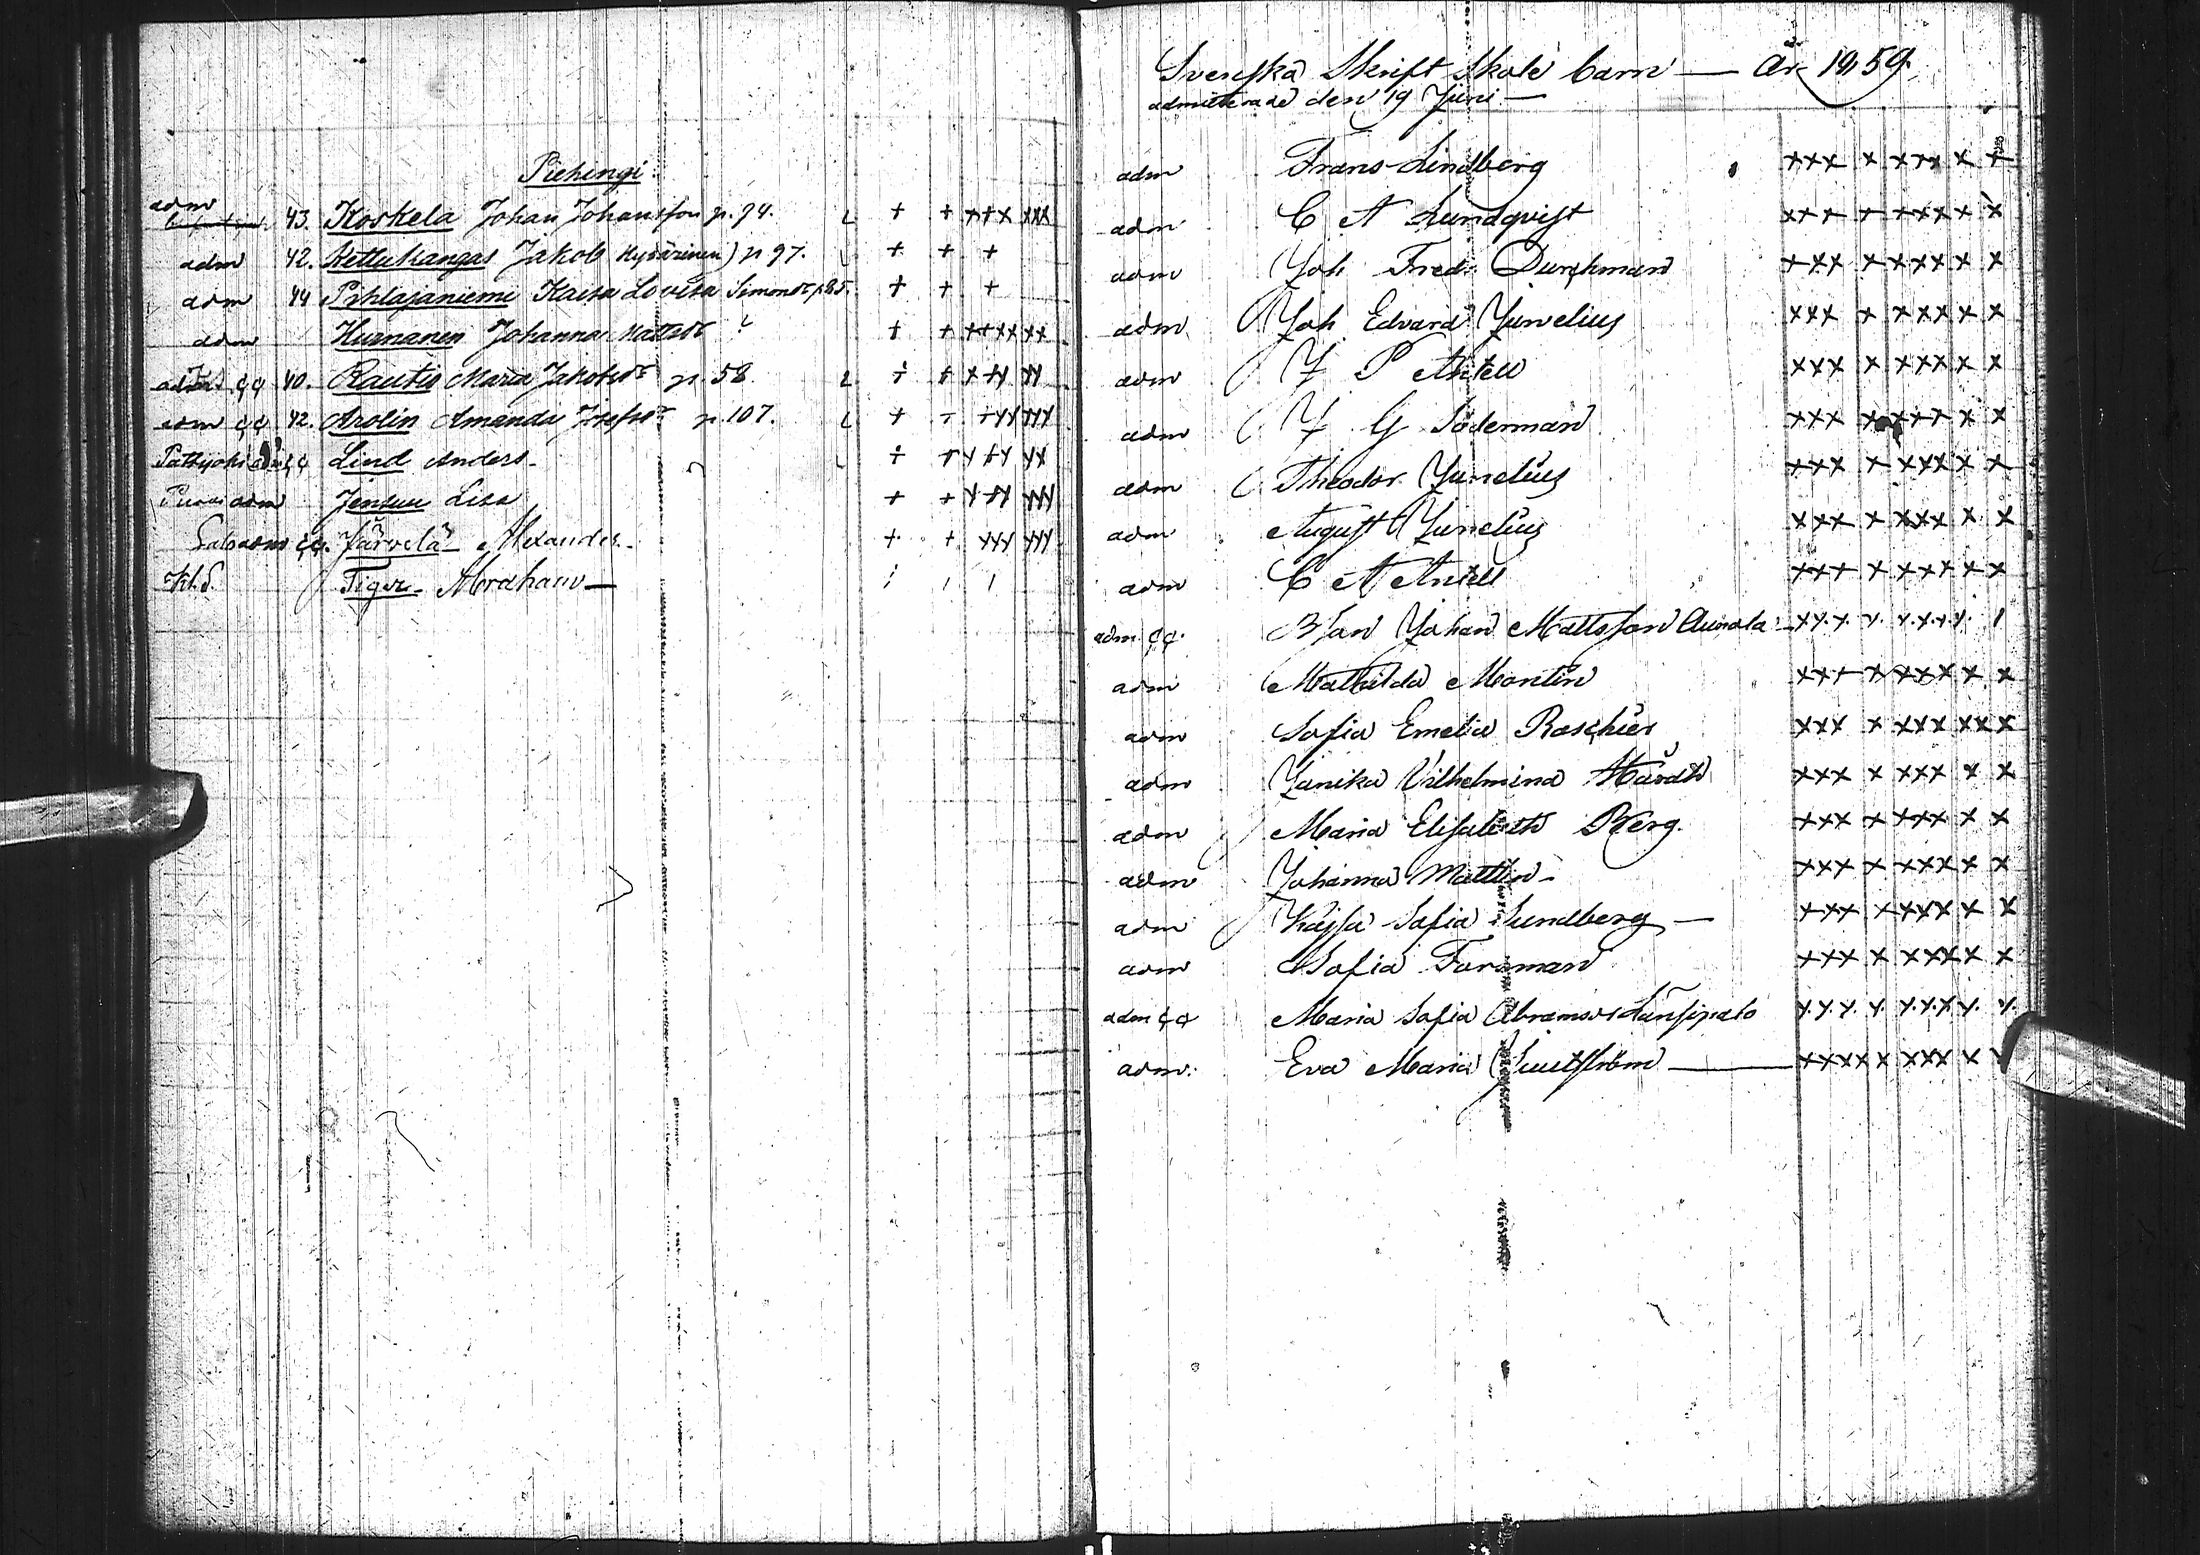 Piehingi
adm 43. Koskela Johan Johansson p. 94. + + +++ xxx
adm 42. Kettukangas Jakob p 97. + + +
adm 44 Pihlajaniemi Kaisa Lovisa Simonsdr p 85. + + +
adm Hurnanen Johanna Mattsdr + + ++xx xx
adm ȼȼ 40. Rautio Maria Jakobsdr p. 58 + + x xx xx
adm ȼȼ 42. Arolin Amanda Josefsdr p. 107. + + +xx xxx
Pattijoki adm ȼȼ Lind Anders + + x xx xx
adm Jensuu Lisa + + x xx xxx
Salo adm ȼȼ. Järvelä Alexander + + xxx xxx
Tiger Abraham —
Svenska Skrift Skole barn — År 1859.
admitterade den 19 Juni —
adm Frans Lindberg xxx x xxx x x
adm C A Lundqvist xxx x xxx x x
adm Joh Fred. Durchman xxx x xxx x x
adm Joh Edvard Junelius xxx x xxx x x
adm J P Antell xxx x xxx x x
adm J G Söderman xxx x xxx x x
adm Theodor Junelius xxx x xxx x x
adm August Junelius xxx x xxx x x
adm C A Antell xxx x xxx x x
adm ȼȼ. Johan Mattsson Aunola x.x.x x. x.x.x x. 1
adm Mathilda Montin xxx x xxx x x
adm Sofia Emelia Roschier xxx x xxx xx x
adm Janika Vilhelmina xxx x xxx x x
adm Maria Elisabeth Berg. xxx x xxx x x
adm Johanna Mattlin xxx x xxx x x
adm Kajsa Sofia Sundberg — xxx x xxx x x
adm Sofia Forsman xxx x xxx x x
adm ȼȼ Maria Sofia Abramsdr Länsipalo x.x.x. x. x.x.x x. x.
adm. Eva Maria — xxxx x xxx x